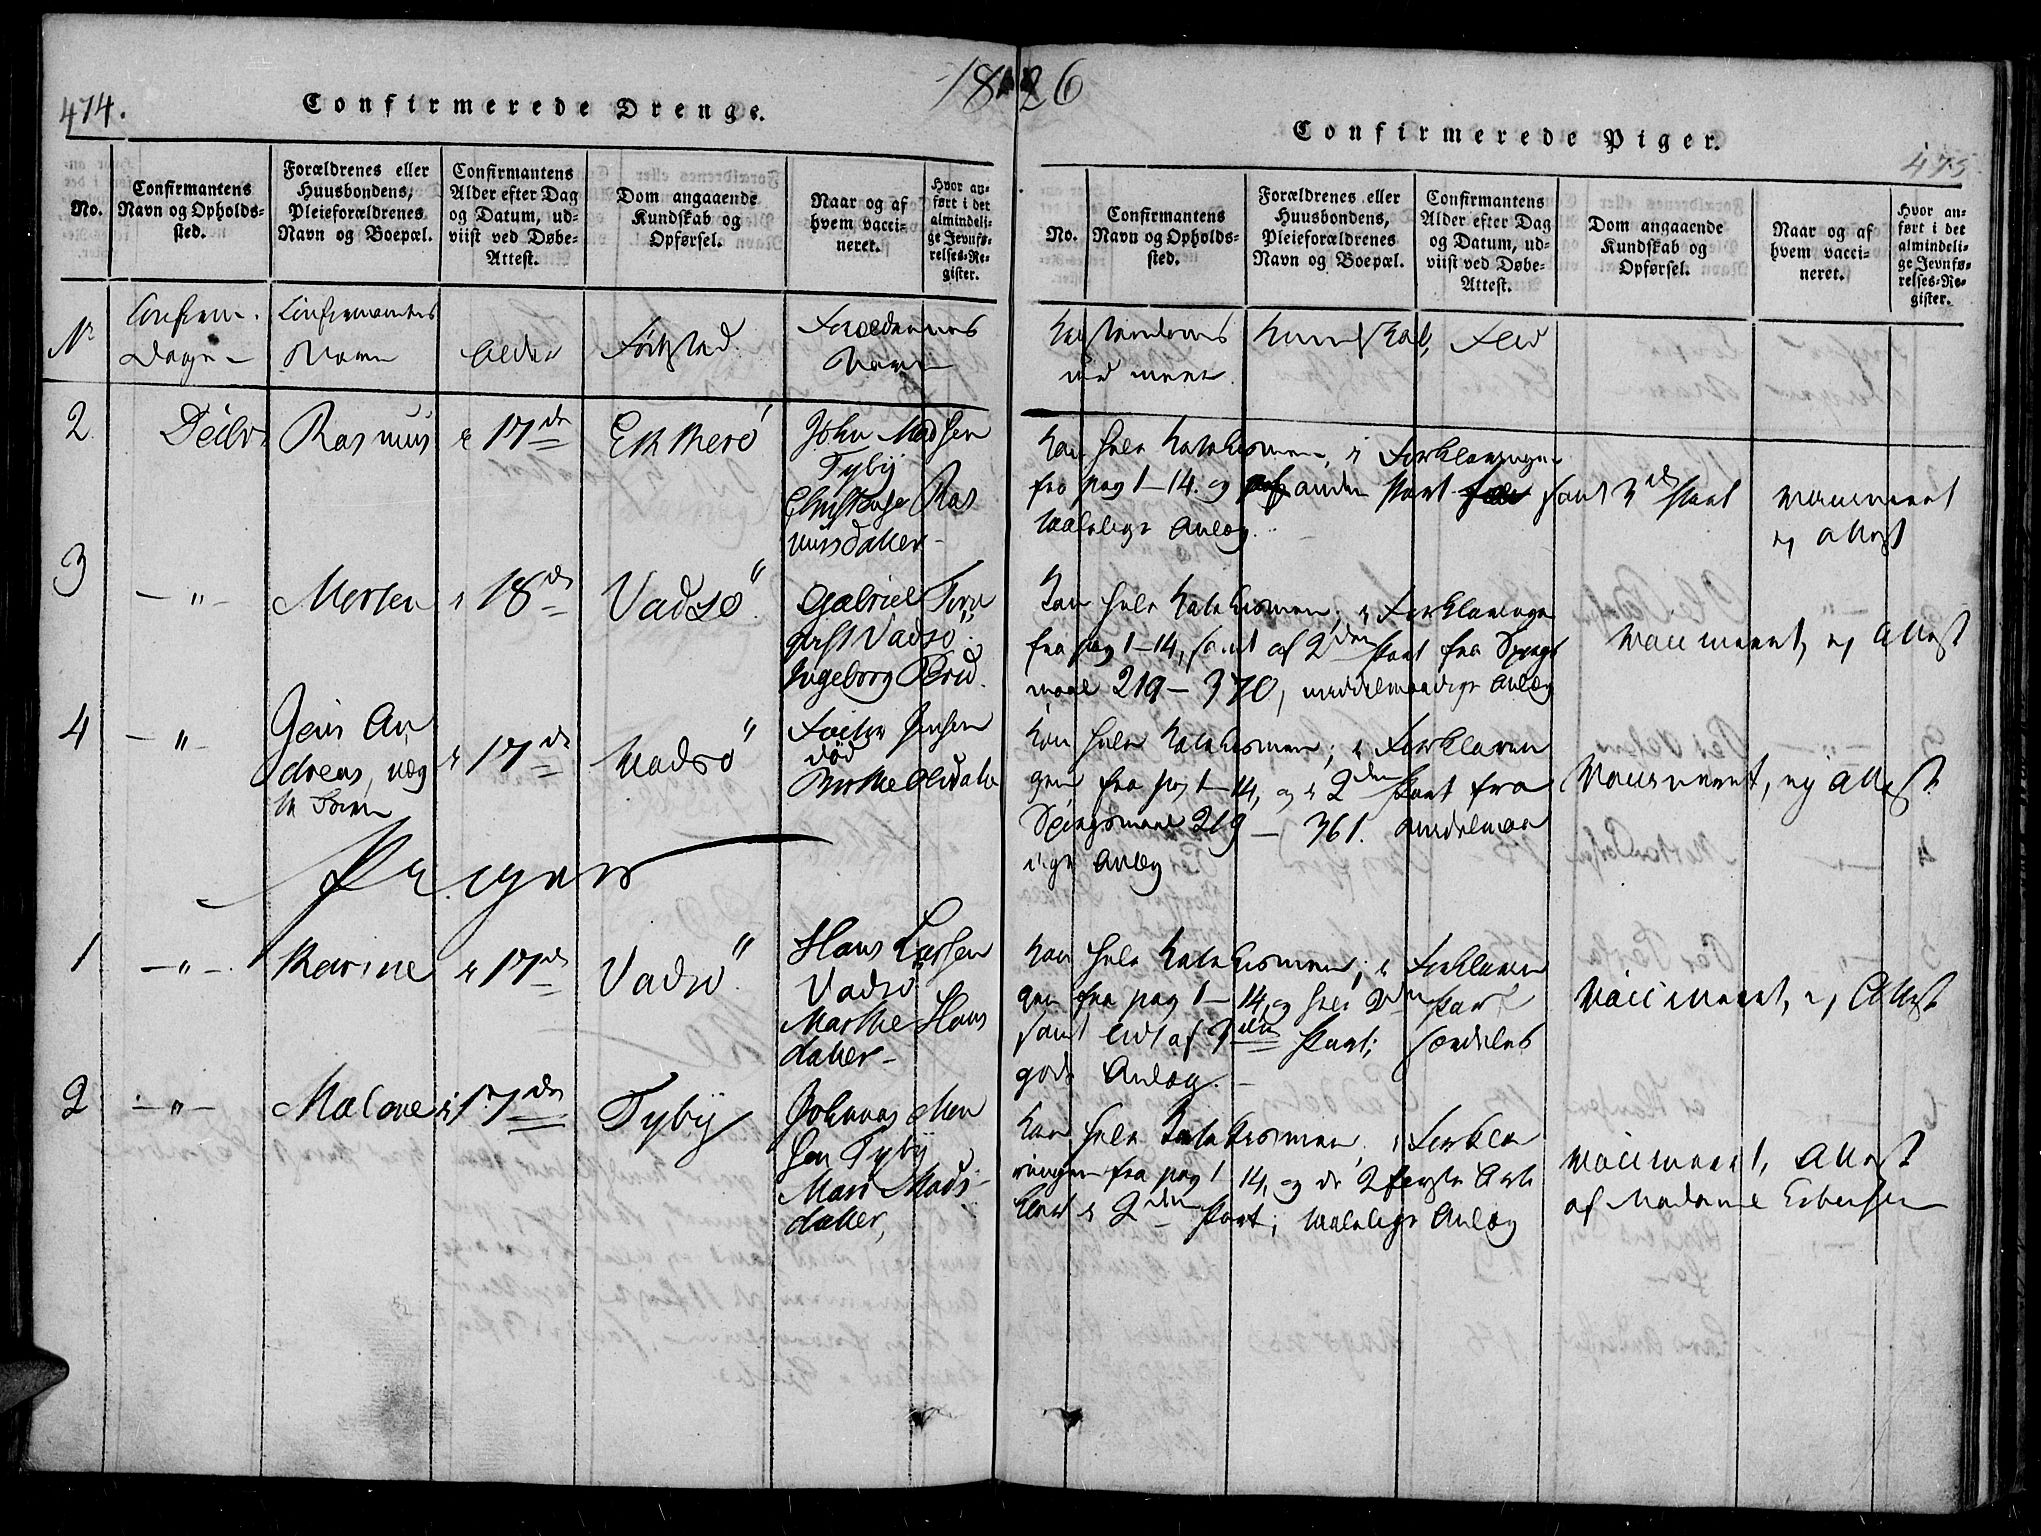 1826
474.
Confirmerede Drenge.
No.
Confirmantens
Navn og Opholds-
sted.
Forældrenes eller
Huusbondens,
Pleieforældrenes
Navn og Boepæl.
Confirmantens
Alder efter Dag
og Datum, ud-
viist ved Døbe-
Attest.
Dom angaaende
Kundskab og
Opførsel.
Naar og af
hvem vacci-
neret.
Hvor an-
ført i det
almindeli-
ge Jevnfø-
relses-Re-
gister.
No
Confirm.
Dagen
Confirmantes
Navn
Alder
Födsted
Forældrenes
Navn
2
Rasmus
17de
Ekkerö
John Madsen
Tybÿ
Ras
musdatter
3
— " —
Morten
18de
Vadsö
Gabriel
Vadsö
Ingeborg
4
— " —
Jens An
dreas, uæg
te Sön
17de
Vadsö
Jensen
död
Piger
1
— " —
Karine
17de
Vadsö
Hans Larsen
Vadsö
Marthe Hans
datter
2
— " —
Malene
17de
Tybÿ
Johannes
sen Tybÿ
Mari Mads
datter,
Confirmerede Piger.
475
No.
Confirmantens
Navn og Opholds-
sted.
Forældrenes eller
Huusbondens,
Pleieforældrenes
Navn og Boepæl.
Confirmantens
Alder efter Dag
og Datum, ud-
viist ved Døbe-
Attest.
Dom angaaende
Kundskab og
Opførsel.
Naar og af
hvem vacci-
neret.
Hvor an-
ført i det
almindeli-
ge Jevnfø-
relses-Re-
gister.
Kundskab, Flid
Kan hele Katekismen, i Forklaringen
fra pag 1-14. og anden Part samt 3de Part
taalelige Anlæg.
Vaccineret
ej Attest
Kan hele Katekismen; i Forklaringen
fra pag 1-14, samt af 2den Part fra Spörgs
maal 219 - 370, middelmaadige Anlæg
Vaccineret, ej Attest
Kan hele Katekismen; i Forklarin
gen fra pag 1-14, og i 2den Part fra
Spörgsmaal 219 - 361. middelmaa
dige Anlæg
Vaccineret, ej Attest
Kan hele Katekismen; i Forklarin
gen fra pag 1-14, og hele 2den Part
samt lidt af 3die Part; særdeles
gode Anlæg.
Vaccineret, ej Attest
Kan hele Katekismen, i Forkla
ringen fra pag 1-14, og de 2 förste Arti
kler i 2den Part; taalelige Anlæg
Vaccineret, Attest
af Madame Esbensen